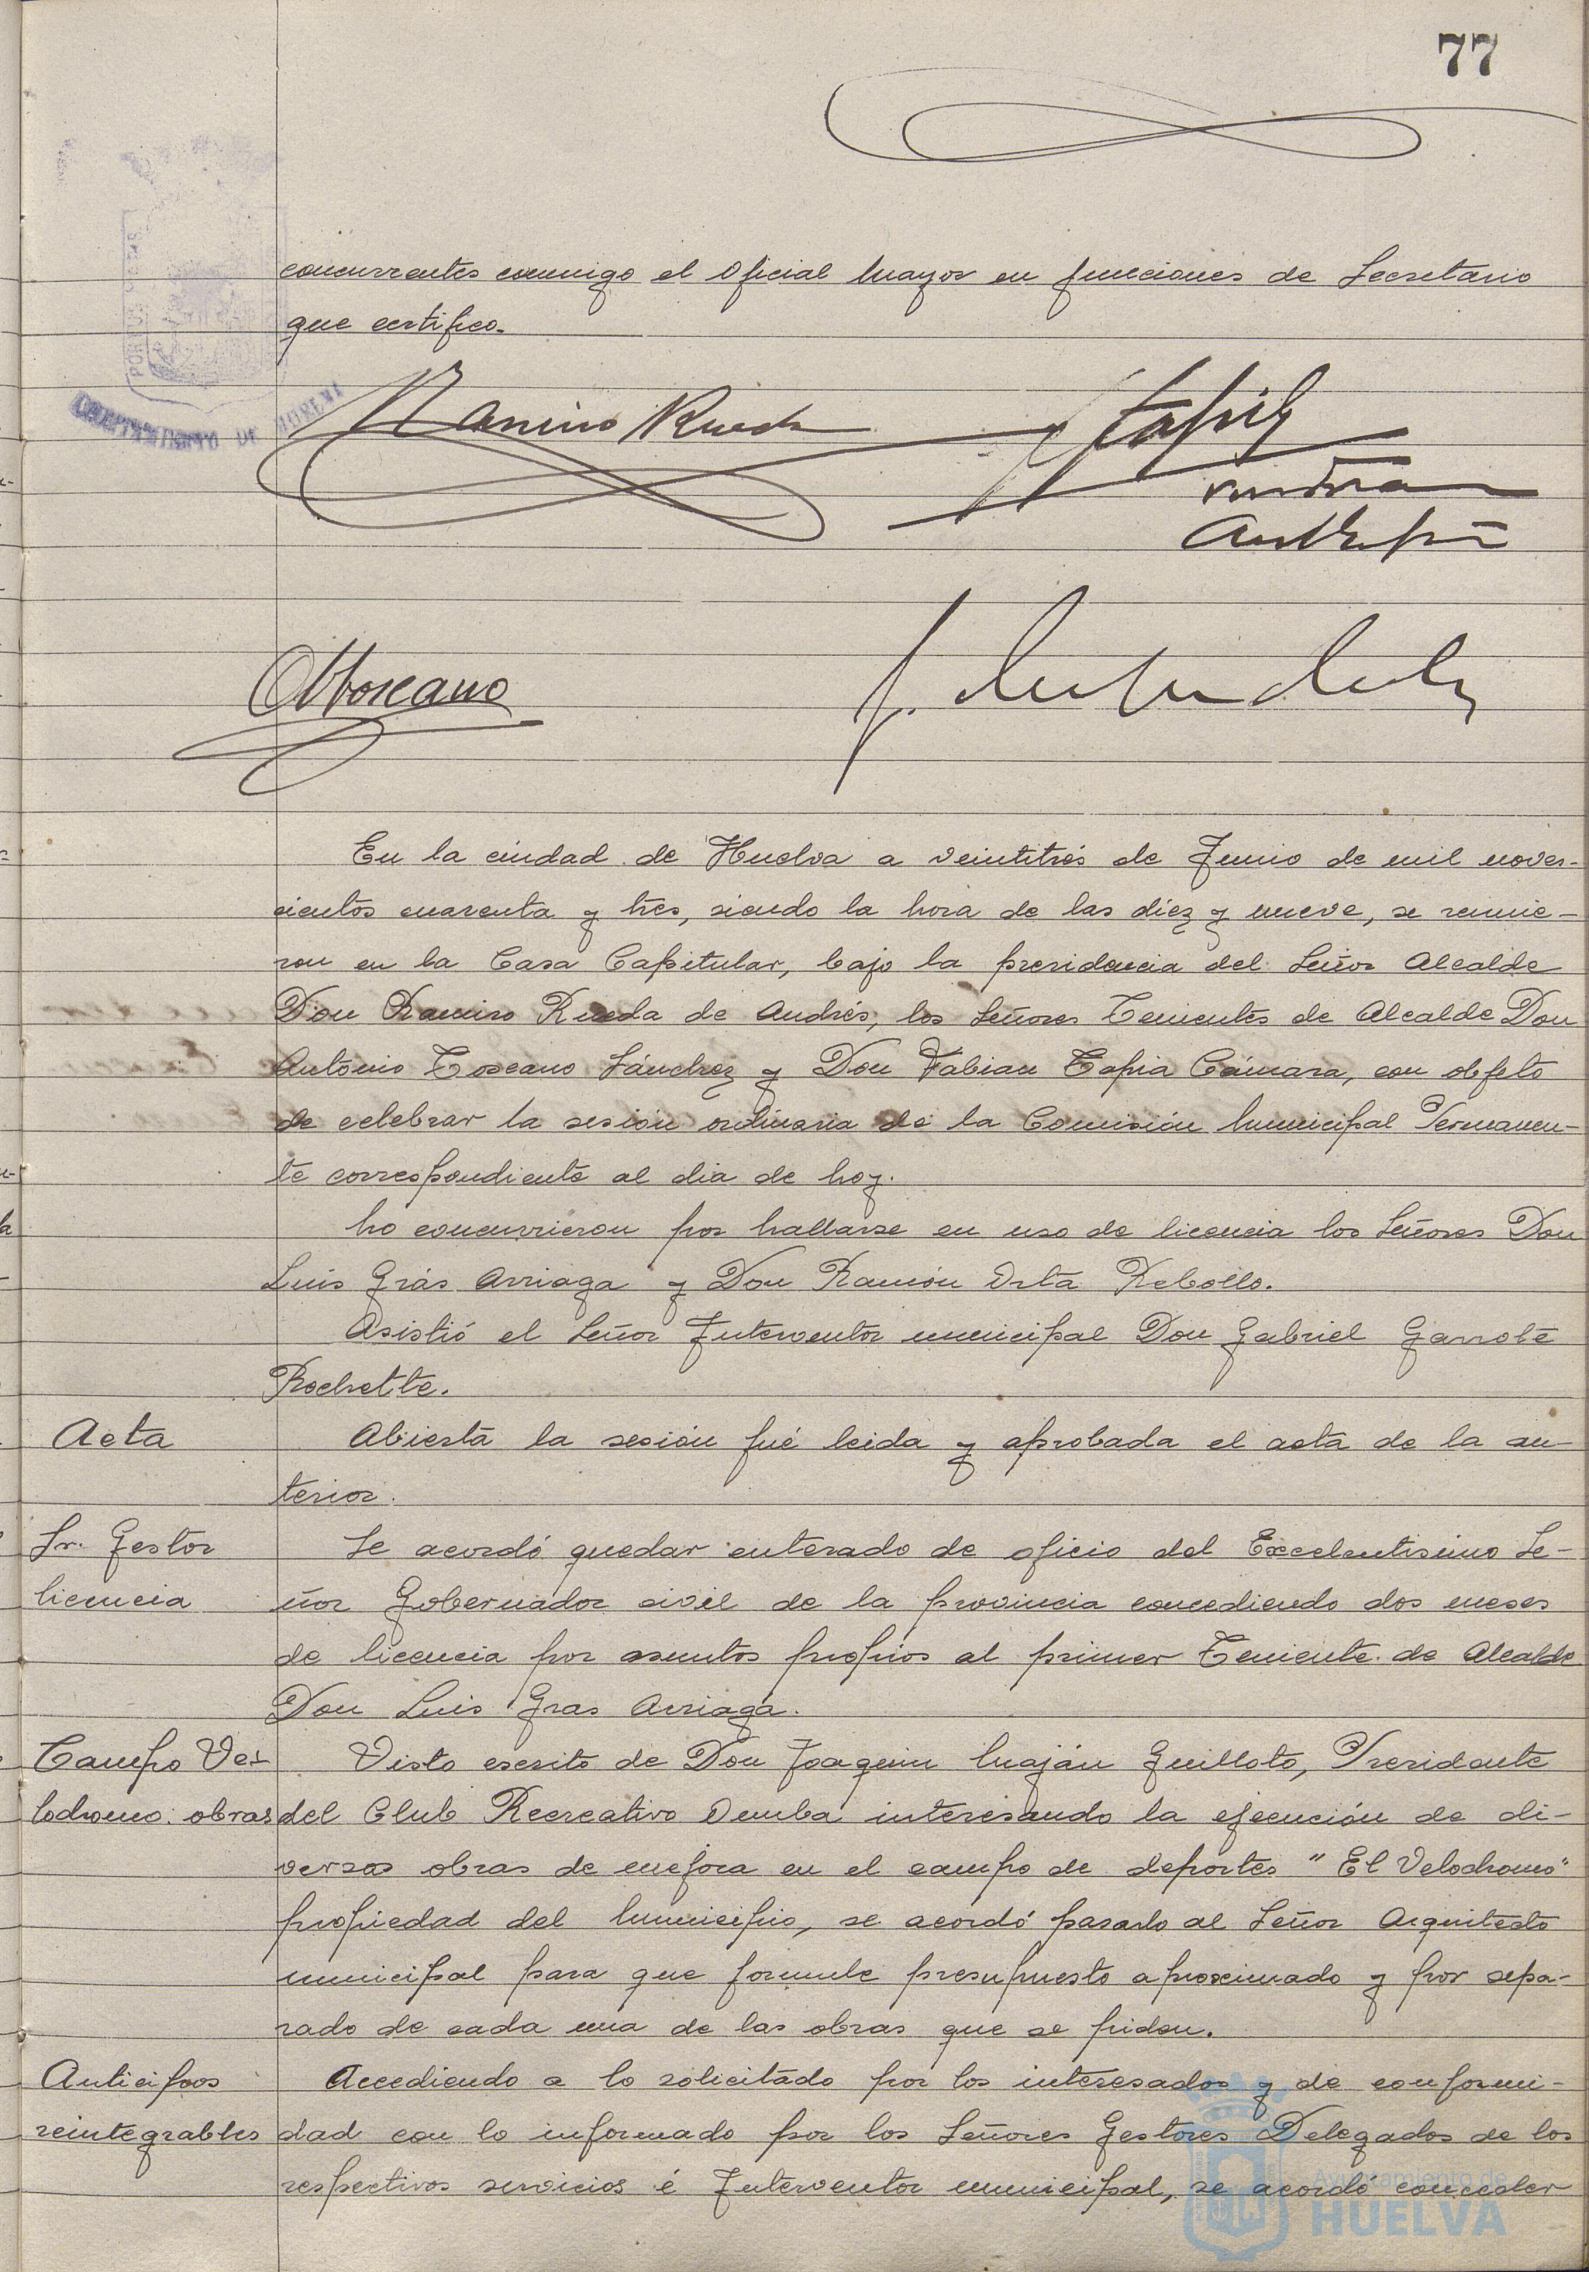 77
concurrentes conmigo el Oficial Mayor en funciones de Secretario
que certifico.
Ramiro Rueda
Tapia
AToscano
En la ciudad de Huelva a veintitrés de Junio de mil nove-
cientos cuarenta y tres, siendo la hora de las diez y nueve, se reunie-
ron en la Casa Capitular, bajo la presidencia del Señor Alcalde
Don Ramiro Rueda de Andrés, los Señores Tenientes de Alcalde Don
Antonio Toscano Sánchez y Don Fabian Tapia Cámara, con objeto
de celebrar la sesión ordinaria de la Comisión Municipal Permanen-
te correspondiente al dia de hoy.
No concurrieron por hallarse en uso de licencia los Señores Don
Luis Grás Arriaga y Don Ramón Orta Rebollo.
Asistió el Señor Interventor municipal Don Gabriel Garrote
Rochette.
Acta
Abierta la sesión fué leida y aprobada el acta de la an-
terior.
Sr. Gestor
licencia
Se acordó quedar enterado de oficio del Excelentisimo Se-
ñor Gobernador civil de la provincia concediendo dos meses
de licencia por asuntos propios al primer Teniente de Alcalde
Don Luis Gras Arriaga.
Campo Ve-
lodromo: obras
Visto escrito de Don Joaquin Maján Guilloto, Presidente
del Club Recreativo Onuba interesando la ejecución de di-
versas obras de mejora en el campo de deportes "El Velodromo"
propiedad del Municipio, se acordó pasarlo al Señor Arquitecto
municipal para que formule presupuesto aproximado y por sepa-
rado de cada una de las obras que se piden.
Anticipos
reintegrables
Accediendo a lo solicitado por los interesados y de conformi-
dad con lo informado por los Señores Gestores Delegados de los
respectivos servicios é Interventor municipal, se acordó conceder
Ayuntamiento de
HUELVA